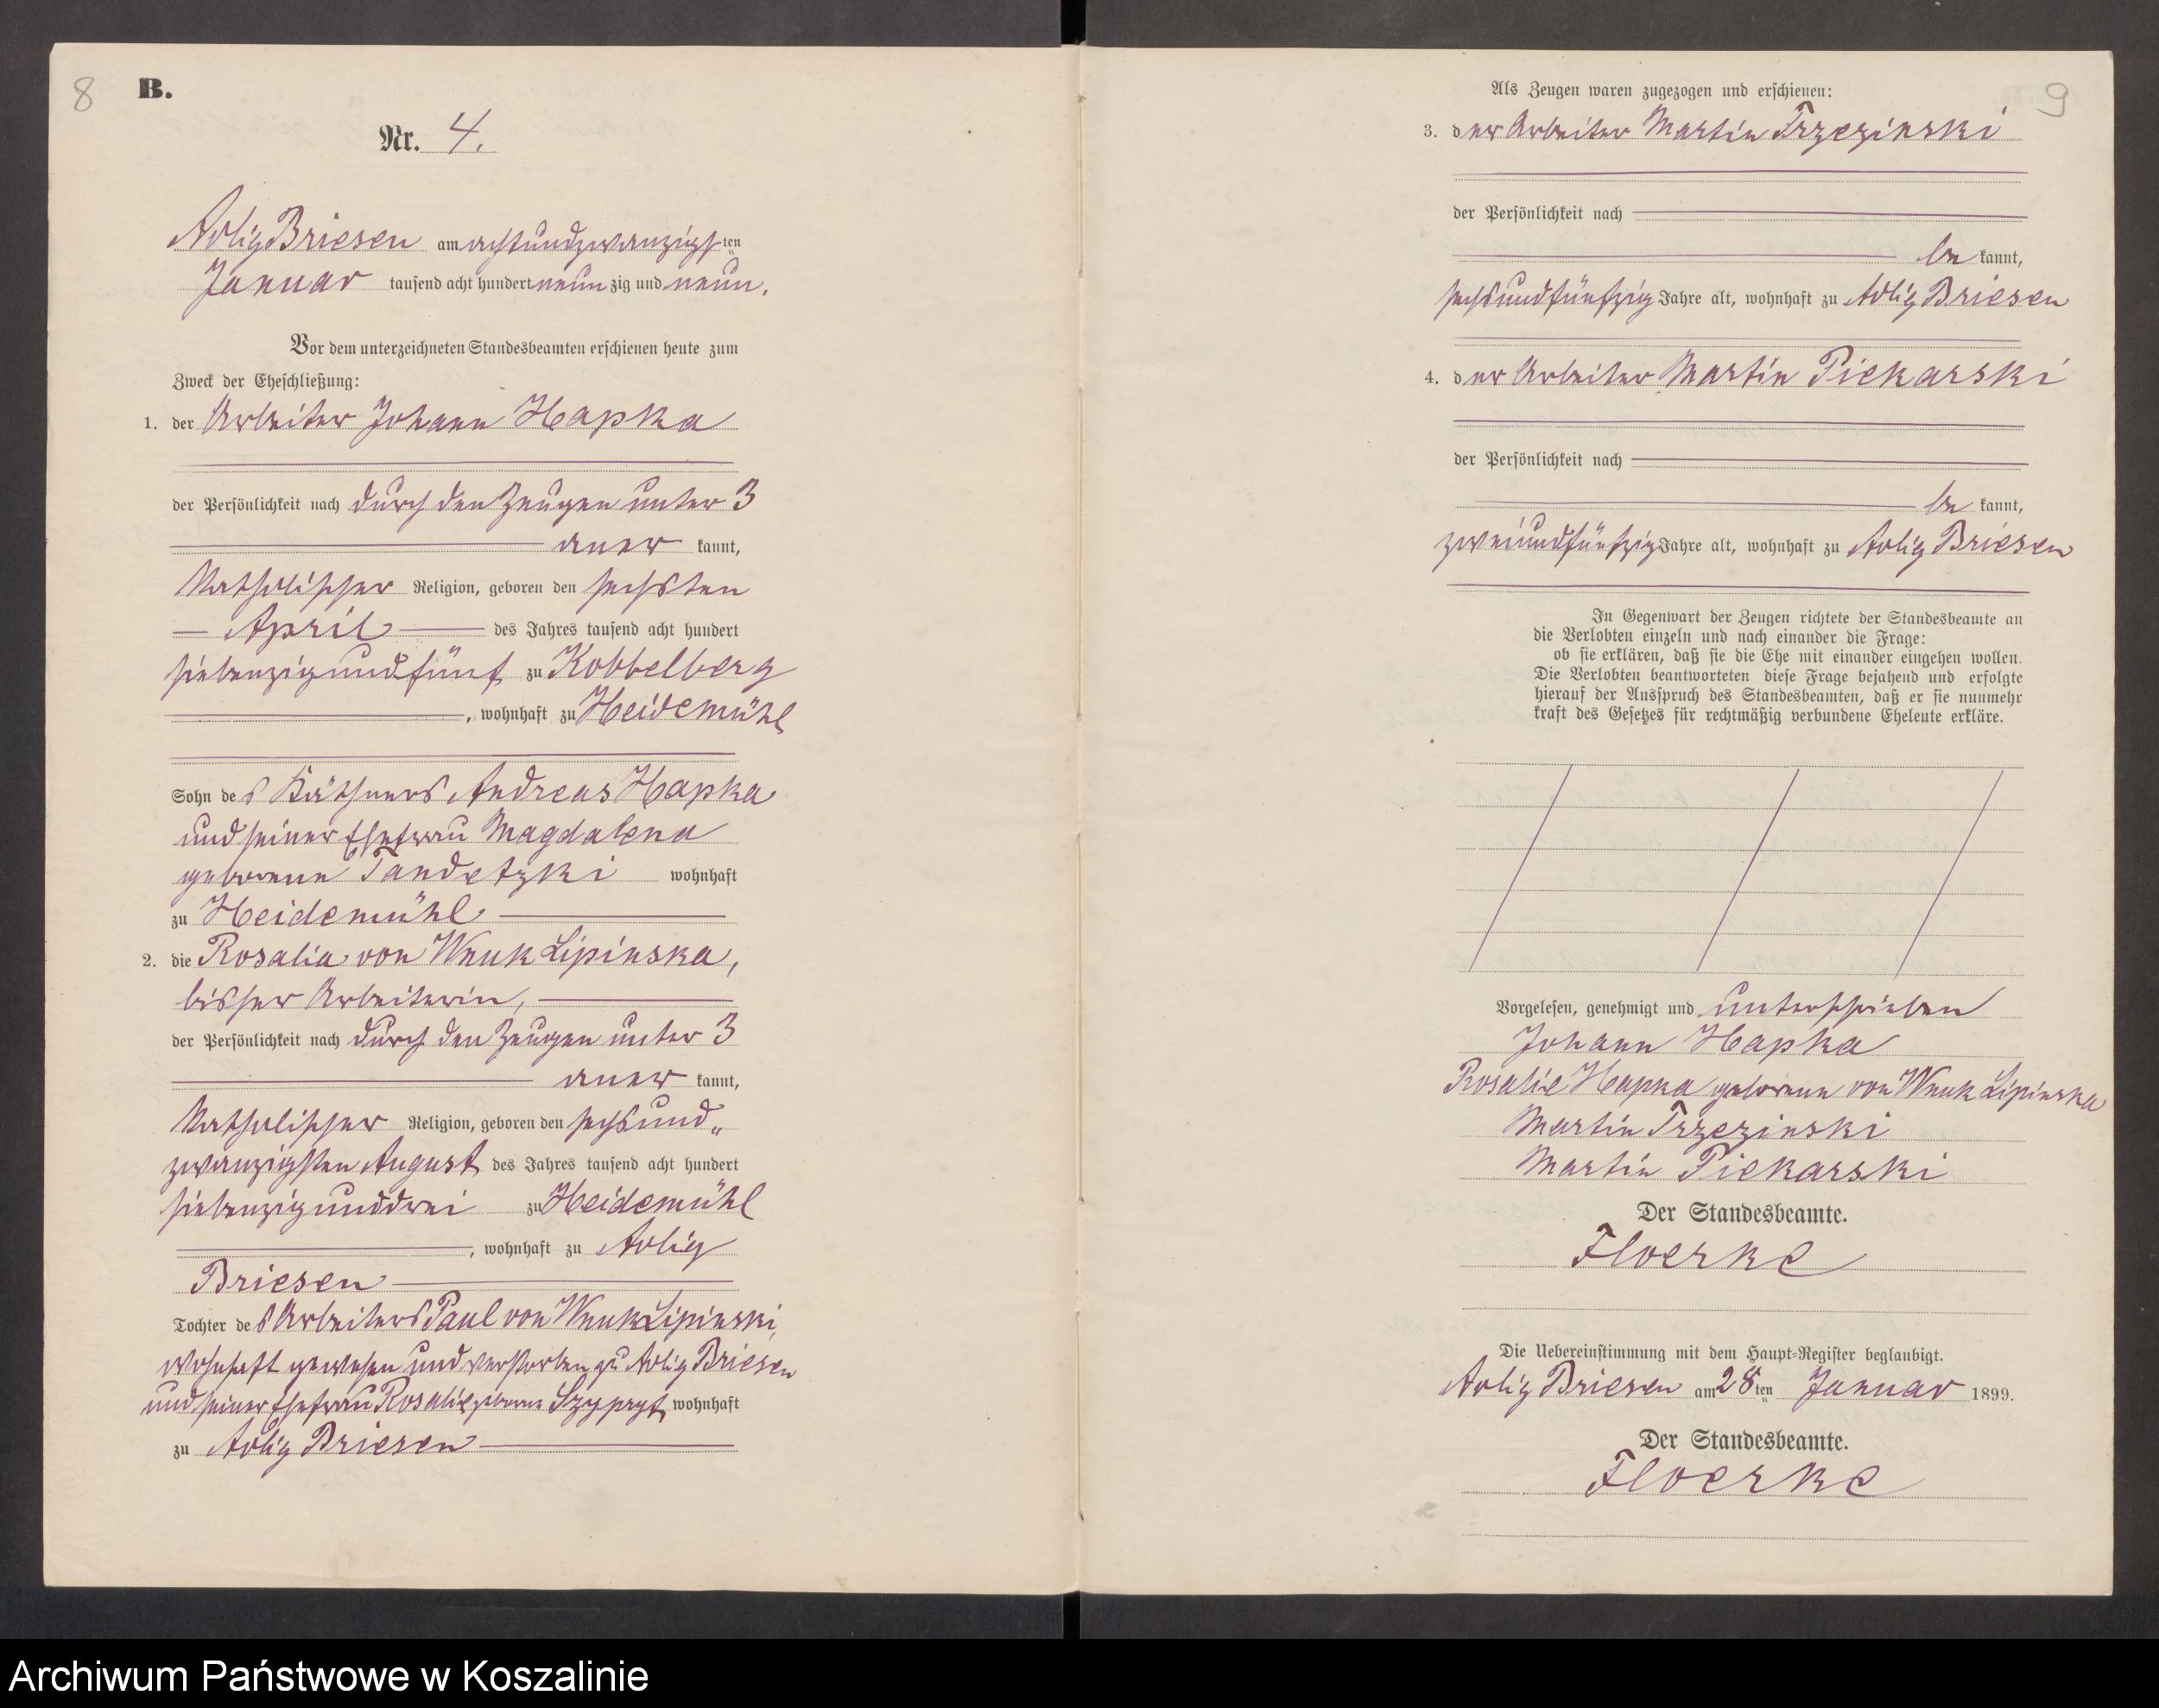 8
B.
Nr. 4.
Adlig Briesen am achtundzwanzigsten
Januar tausend acht hundert neunzig und neun.
Vor dem unterzeichneten Standesbeamten erschienen heute zum
Zweck der Eheschließung:
1. der Arbeiter Johann Hapka
der Persönlichkeit nach durch den Zeugen unter 3
anerkannt,
katholischer Religion, geboren den sechsten
April des Jahres tausend acht hundert
siebenzigundfünf zu Kobbelberg
, wohnhaft zu Heidemühl
Sohn des Käthners Andreas Hapka
und seiner Ehefrau Magdalena
geborene Tandetzki wohnhaft
zu Heidemühl
2. die Rosalia von Wnuk Lipinska,
bisher Arbeiterin,
der Persönlichkeit nach durch den Zeugen unter 3
anerkannt,
katholischer Religion, geboren den sechsund„
zwanzigsten August des Jahres tausend acht hundert
siebenzigunddrei zu Heidemühl
, wohnhaft zu Adlig
Briesen
Tochter des Arbeiters Paul von Wnuk Lipinski,
wohnhaft gewesen und verstorben zu Adlig Briesen
und seiner Ehefrau Rosalie geborene Szypryt wohnhaft
zu Adlig Briesen
9
Als Zeugen waren zugezogen und erschienen:
3. der Arbeiter Martin Trzezinski
der Persönlichkeit nach
bekannt,
sechsundfünfzig Jahre alt, wohnhaft zu Adlig Briesen
4. der Arbeiter Martin Piekarski
der Persönlichkeit nach
bekannt,
zweiundfünfzig Jahre alt, wohnhaft zu Adlig Briesen
In Gegenwart der Zeugen richtete der Standesbeamte an
die Verlobten einzeln und nach einander die Frage:
ob sie erklären, daß sie die Ehe mit einander eingehen wollen.
Die Verlobten beantworteten diese Frage bejahend und erfolgte
hierauf der Ausspruch des Standesbeamten, daß er sie nunmehr
kraft des Gesetzes für rechtmäßig verbundene Eheleute erkläre.
Vorgelesen, genehmigt und unterschrieben
Johann Hapka
Rosalie Hapka geborene von Wnuk Lipinska
Martin Trzezinski
Martin Piekarski
Der Standesbeamte.
Floerke
Die Uebereinstimmung mit dem Haupt-Register beglaubigt.
Adlig Briesen am 28ten Januar 1899.
Der Standesbeamte.
Floerke
Archiwum Państwowe w Koszalinie